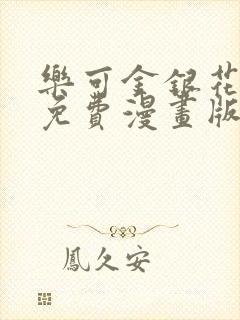 樂可金銀花
免費漫畫版
鳳久安